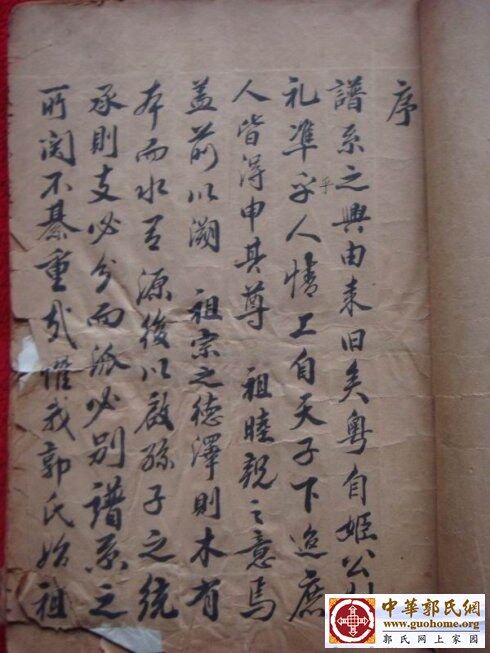 序
譜系之興由来旧矣粤自姬公
礼準乎人情上自天子下迨庶
人皆得申其尊 祖睦親之意焉
盖前以溯 祖宗之德澤則木有
本而水有源後以啟孫子之統
承則支必分而派必别譜系之
所関不綦重哉惟我郭氏始祖
中華郭氏網
www.guohome.org
郭氏网上家园